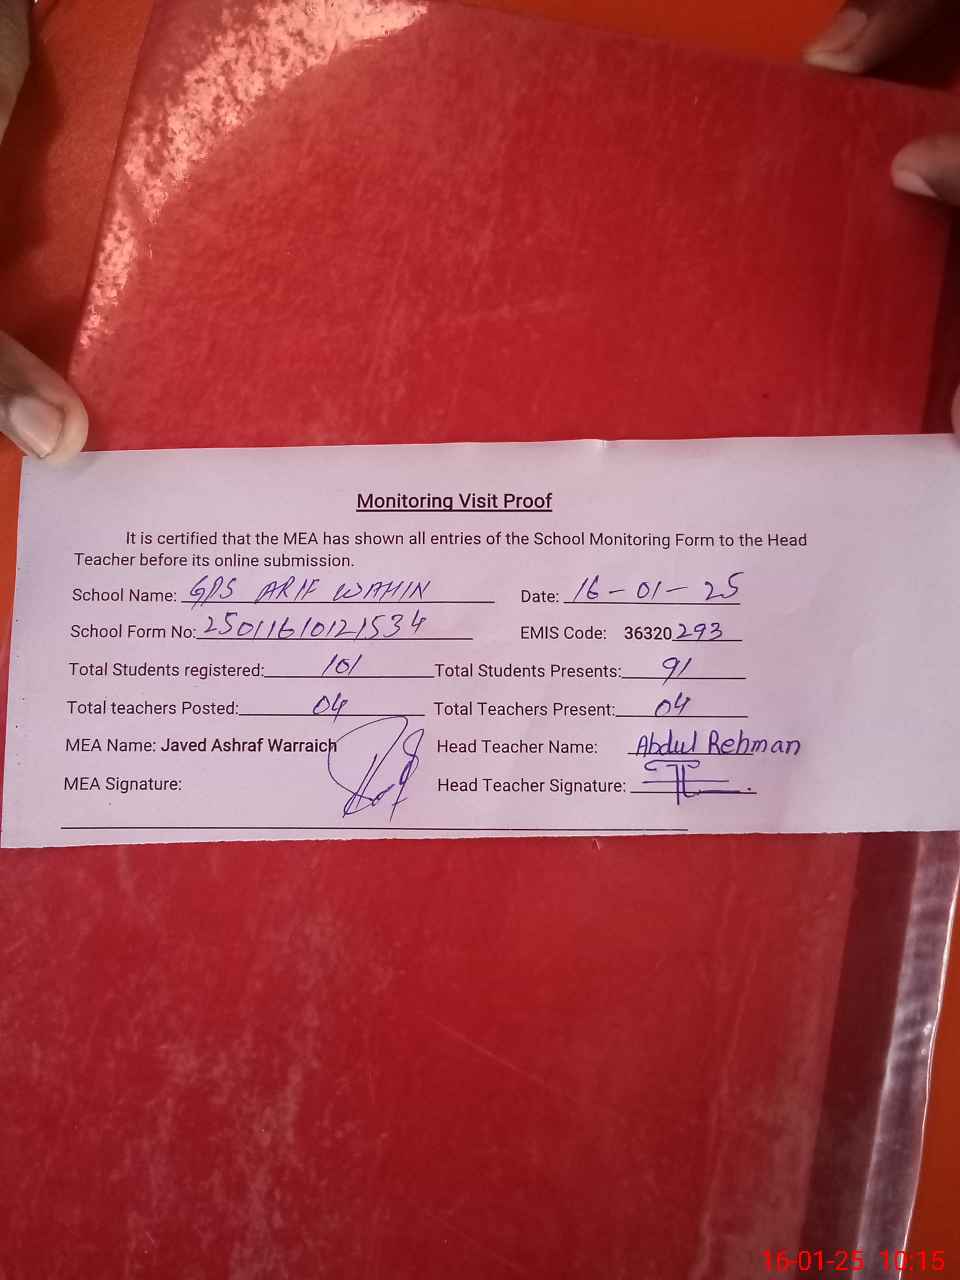 Monitoring Visit Proof
It is certified that the MEA has shown all entries of the School Monitoring Form to the Head
Teacher before its online submission.
School Name: GPS ARIF WAHIN Date: 16-01-25
School Form No: 25011610121534 EMIS Code: 36320293
Total Students registered: 101 Total Students Presents: 91
Total teachers Posted: 04 Total Teachers Present: 04
MEA Name: Javed Ashraf Warraich Head Teacher Name: Abdul Rehman
MEA Signature: Head Teacher Signature:
16-01-25 10:15